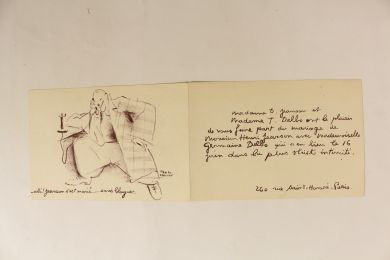 ah! Jeanson s'est marié ... sans blague
Madame D. Jeanson et
Madame T. Delbo ont le plaisir
de vous faire part du mariage de
Monsieur Henri Jeanson avec Mademoiselle
Germaine Delbo qui a eu lieu le 16
juin dans la plus stricte intimité.
260 rue Saint-Honoré. Paris